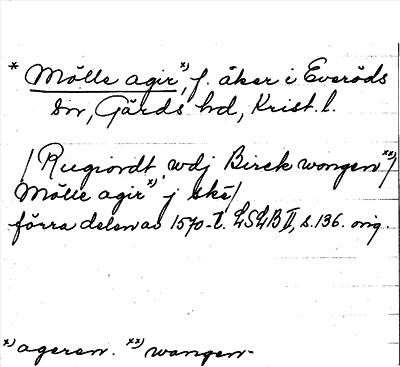 * Mölle agir x), f. åker i Everöds
sn, Gärds hd, Krist. l.
/ Rugiordt wdj Birck wongen xx) /
Mölle agir x) j ské /
förra delen av 1570-t. LSLB II, s. 136. orig.
x) ageren. xx) wangen-